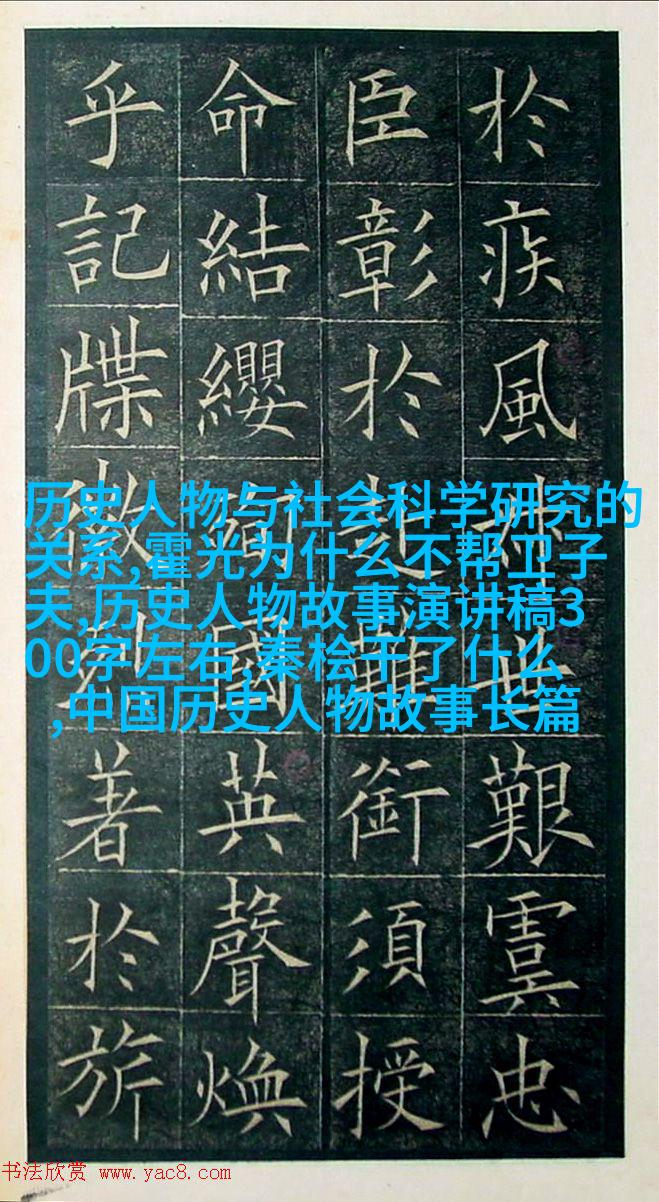 於疾風叔世艱虞忠
臣彰於赴難銜須授
命結纓殉國英聲煥
乎記牒徽烈著於旂
历史人物与社会科学研究的
关系,霍光为什么不帮卫子
夫,历史人物故事演讲稿3
00字左右,秦桧干了什么
,中国历史人物故事长篇
书法欣赏 www.yac8.com